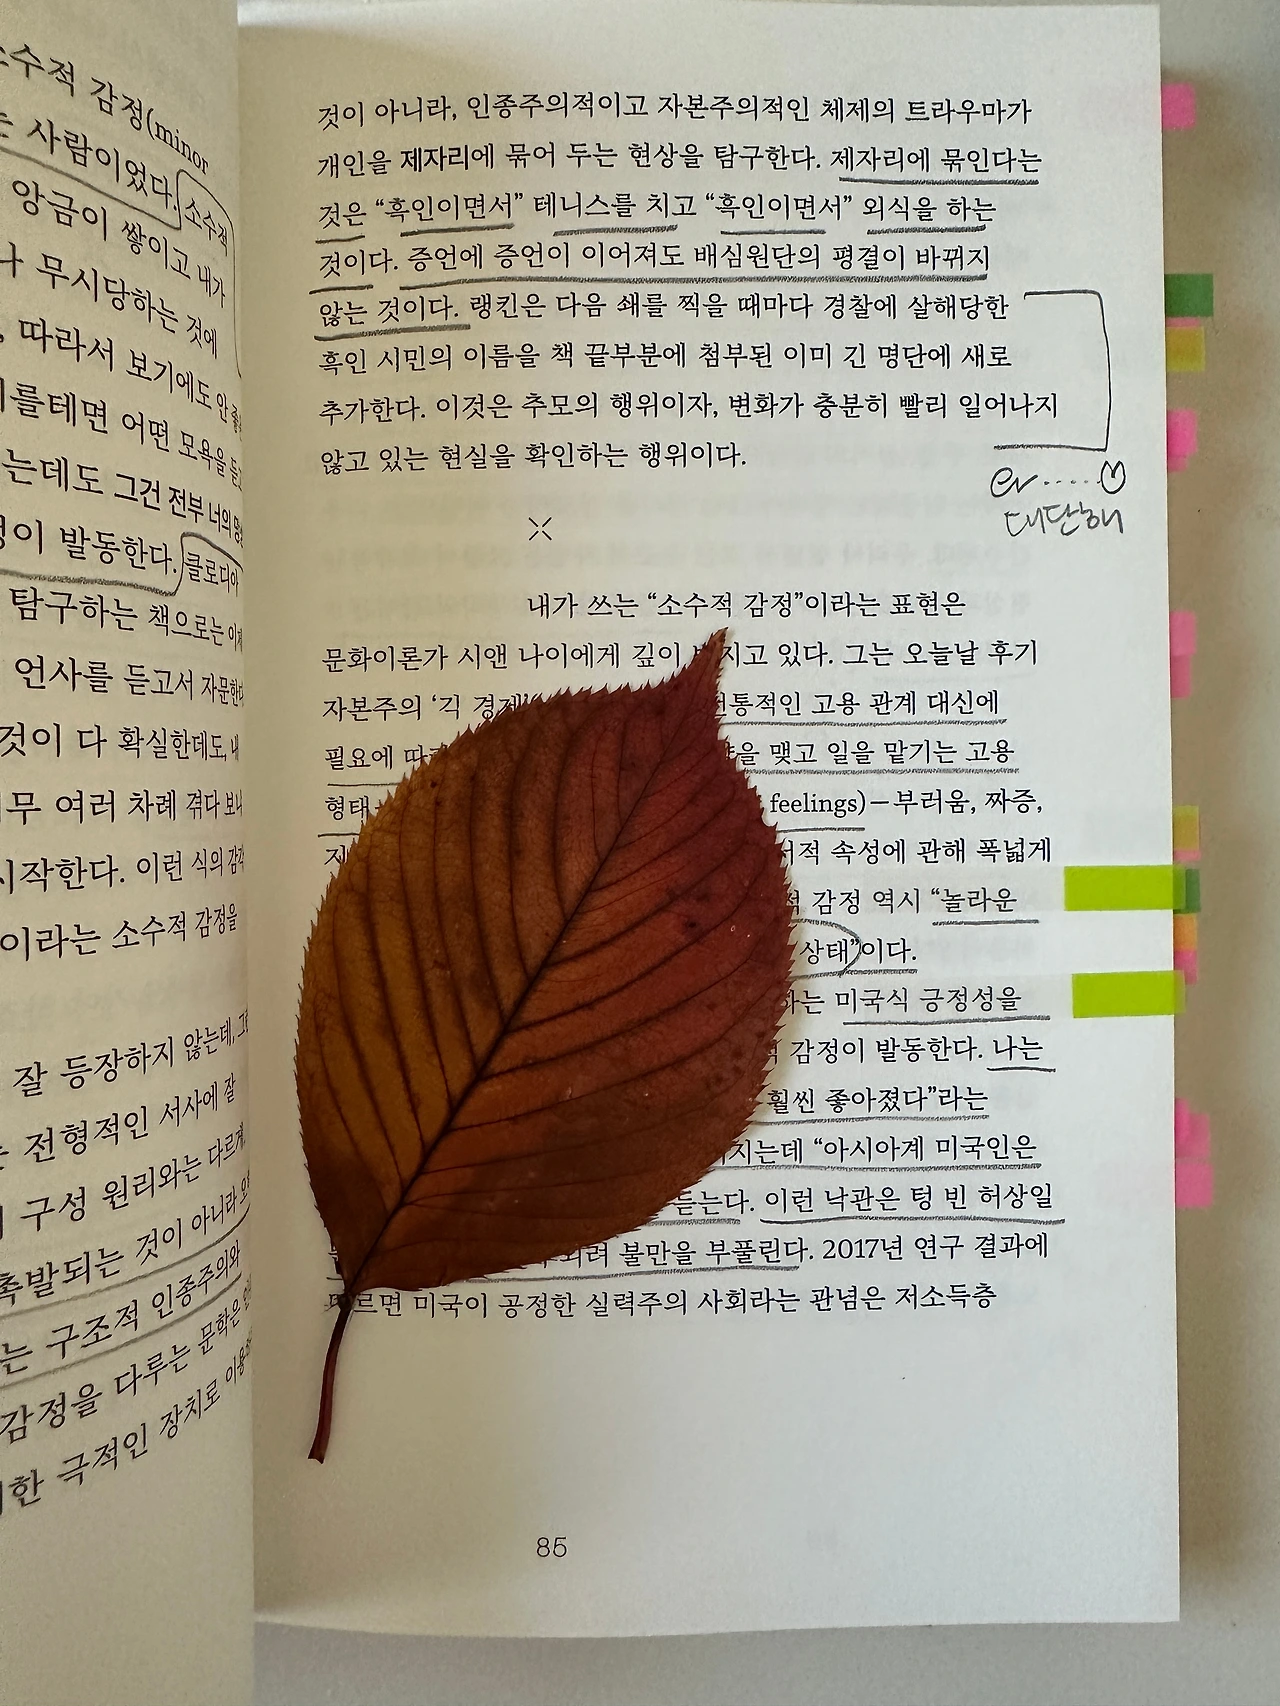 소수적 감정(minor
는 사람이었다. 소수적
앙금이 쌓이고 내가
나 무시당하는 것에
, 따라서 보기에도 안
이를테면 어떤 모욕을 듣고
는데도 그건 전부 너의
이 발동한다. 클로디아
탐구하는 책으로는 이제
언사를 듣고서 자문한다
것이 다 확실한데도, 내
무 여러 차례 겪다 보니
시작한다. 이런 식의 감각
이라는 소수적 감정을
잘 등장하지 않는데,
는 전형적인 서사에 잘
구성 원리와는 다르게,
촉발되는 것이 아니라
는 구조적 인종주의와
감정을 다루는 문학은
한 극적인 장치로
것이 아니라, 인종주의적이고 자본주의적인 체제의 트라우마가
개인을 제자리에 묶어 두는 현상을 탐구한다. 제자리에 묶인다는
것은 “흑인이면서” 테니스를 치고 “흑인이면서” 외식을 하는
것이다. 증언에 증언이 이어져도 배심원단의 평결이 바뀌지
않는 것이다. 랭킨은 다음 쇄를 찍을 때마다 경찰에 살해당한
흑인 시민의 이름을 책 끝부분에 첨부된 이미 긴 명단에 새로
추가한다. 이것은 추모의 행위이자, 변화가 충분히 빨리 일어나지
않고 있는 현실을 확인하는 행위이다.
대단해
내가 쓰는 “소수적 감정”이라는 표현은
문화이론가 시앤 나이에게 깊이 지고 있다. 그는 오늘날 후기
자본주의 ‘긱 경제’ 전통적인 고용 관계 대신에
필요에 맺고 일을 맡기는 고용
형태 feelings)—부러움, 짜증,
속성에 관해 폭넓게
감정 역시 “놀라운
상태”이다.
하는 미국식 긍정성을
감정이 발동한다. 나는
훨씬 좋아졌다”라는
지는데 “아시아계 미국인은
듣는다. 이런 낙관은 텅 빈 허상일
불만을 부풀린다. 2017년 연구 결과에
따르면 미국이 공정한 실력주의 사회라는 관념은 저소득층
85